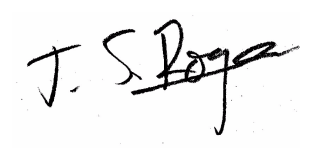 J. S. Roga